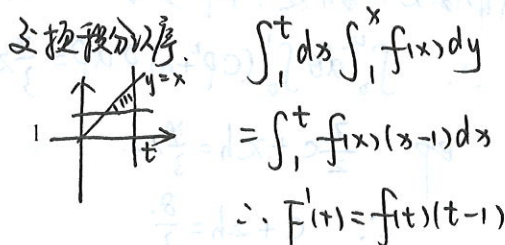 交换积分次序.
y=x
1
t
∫₁ᵗ dx ∫₁ˣ f(x) dy
= ∫₁ᵗ f(x)(x-1) dx
∴ F'(t) = f(t)(t-1)